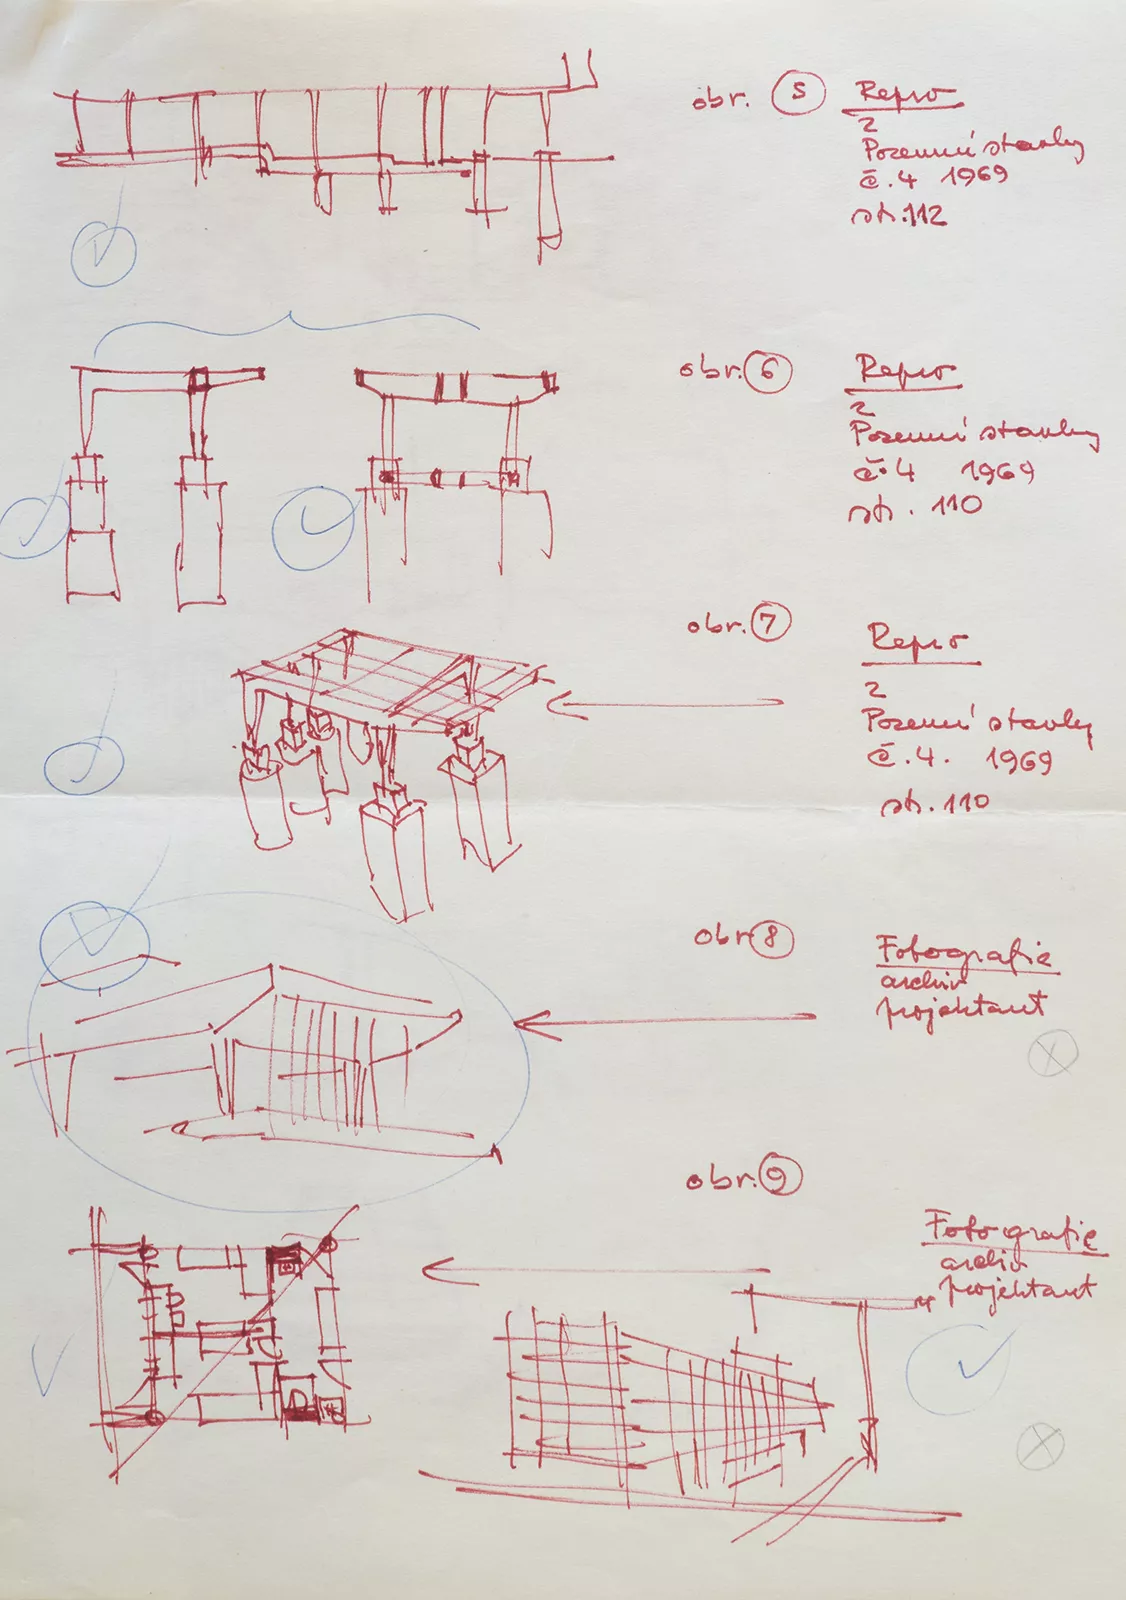 obr. 5 Repro
z
Pozemní stavby
č.4 1969
str.112
obr. 6 Repro
z
Pozemní stavby
č.4 1969
str. 110
obr. 7 Repro
z
Pozemní stavby
č.4. 1969
str. 110
obr 8 Fotografie
archiv
projektant
obr. 9
Fotografie
archiv
projektant